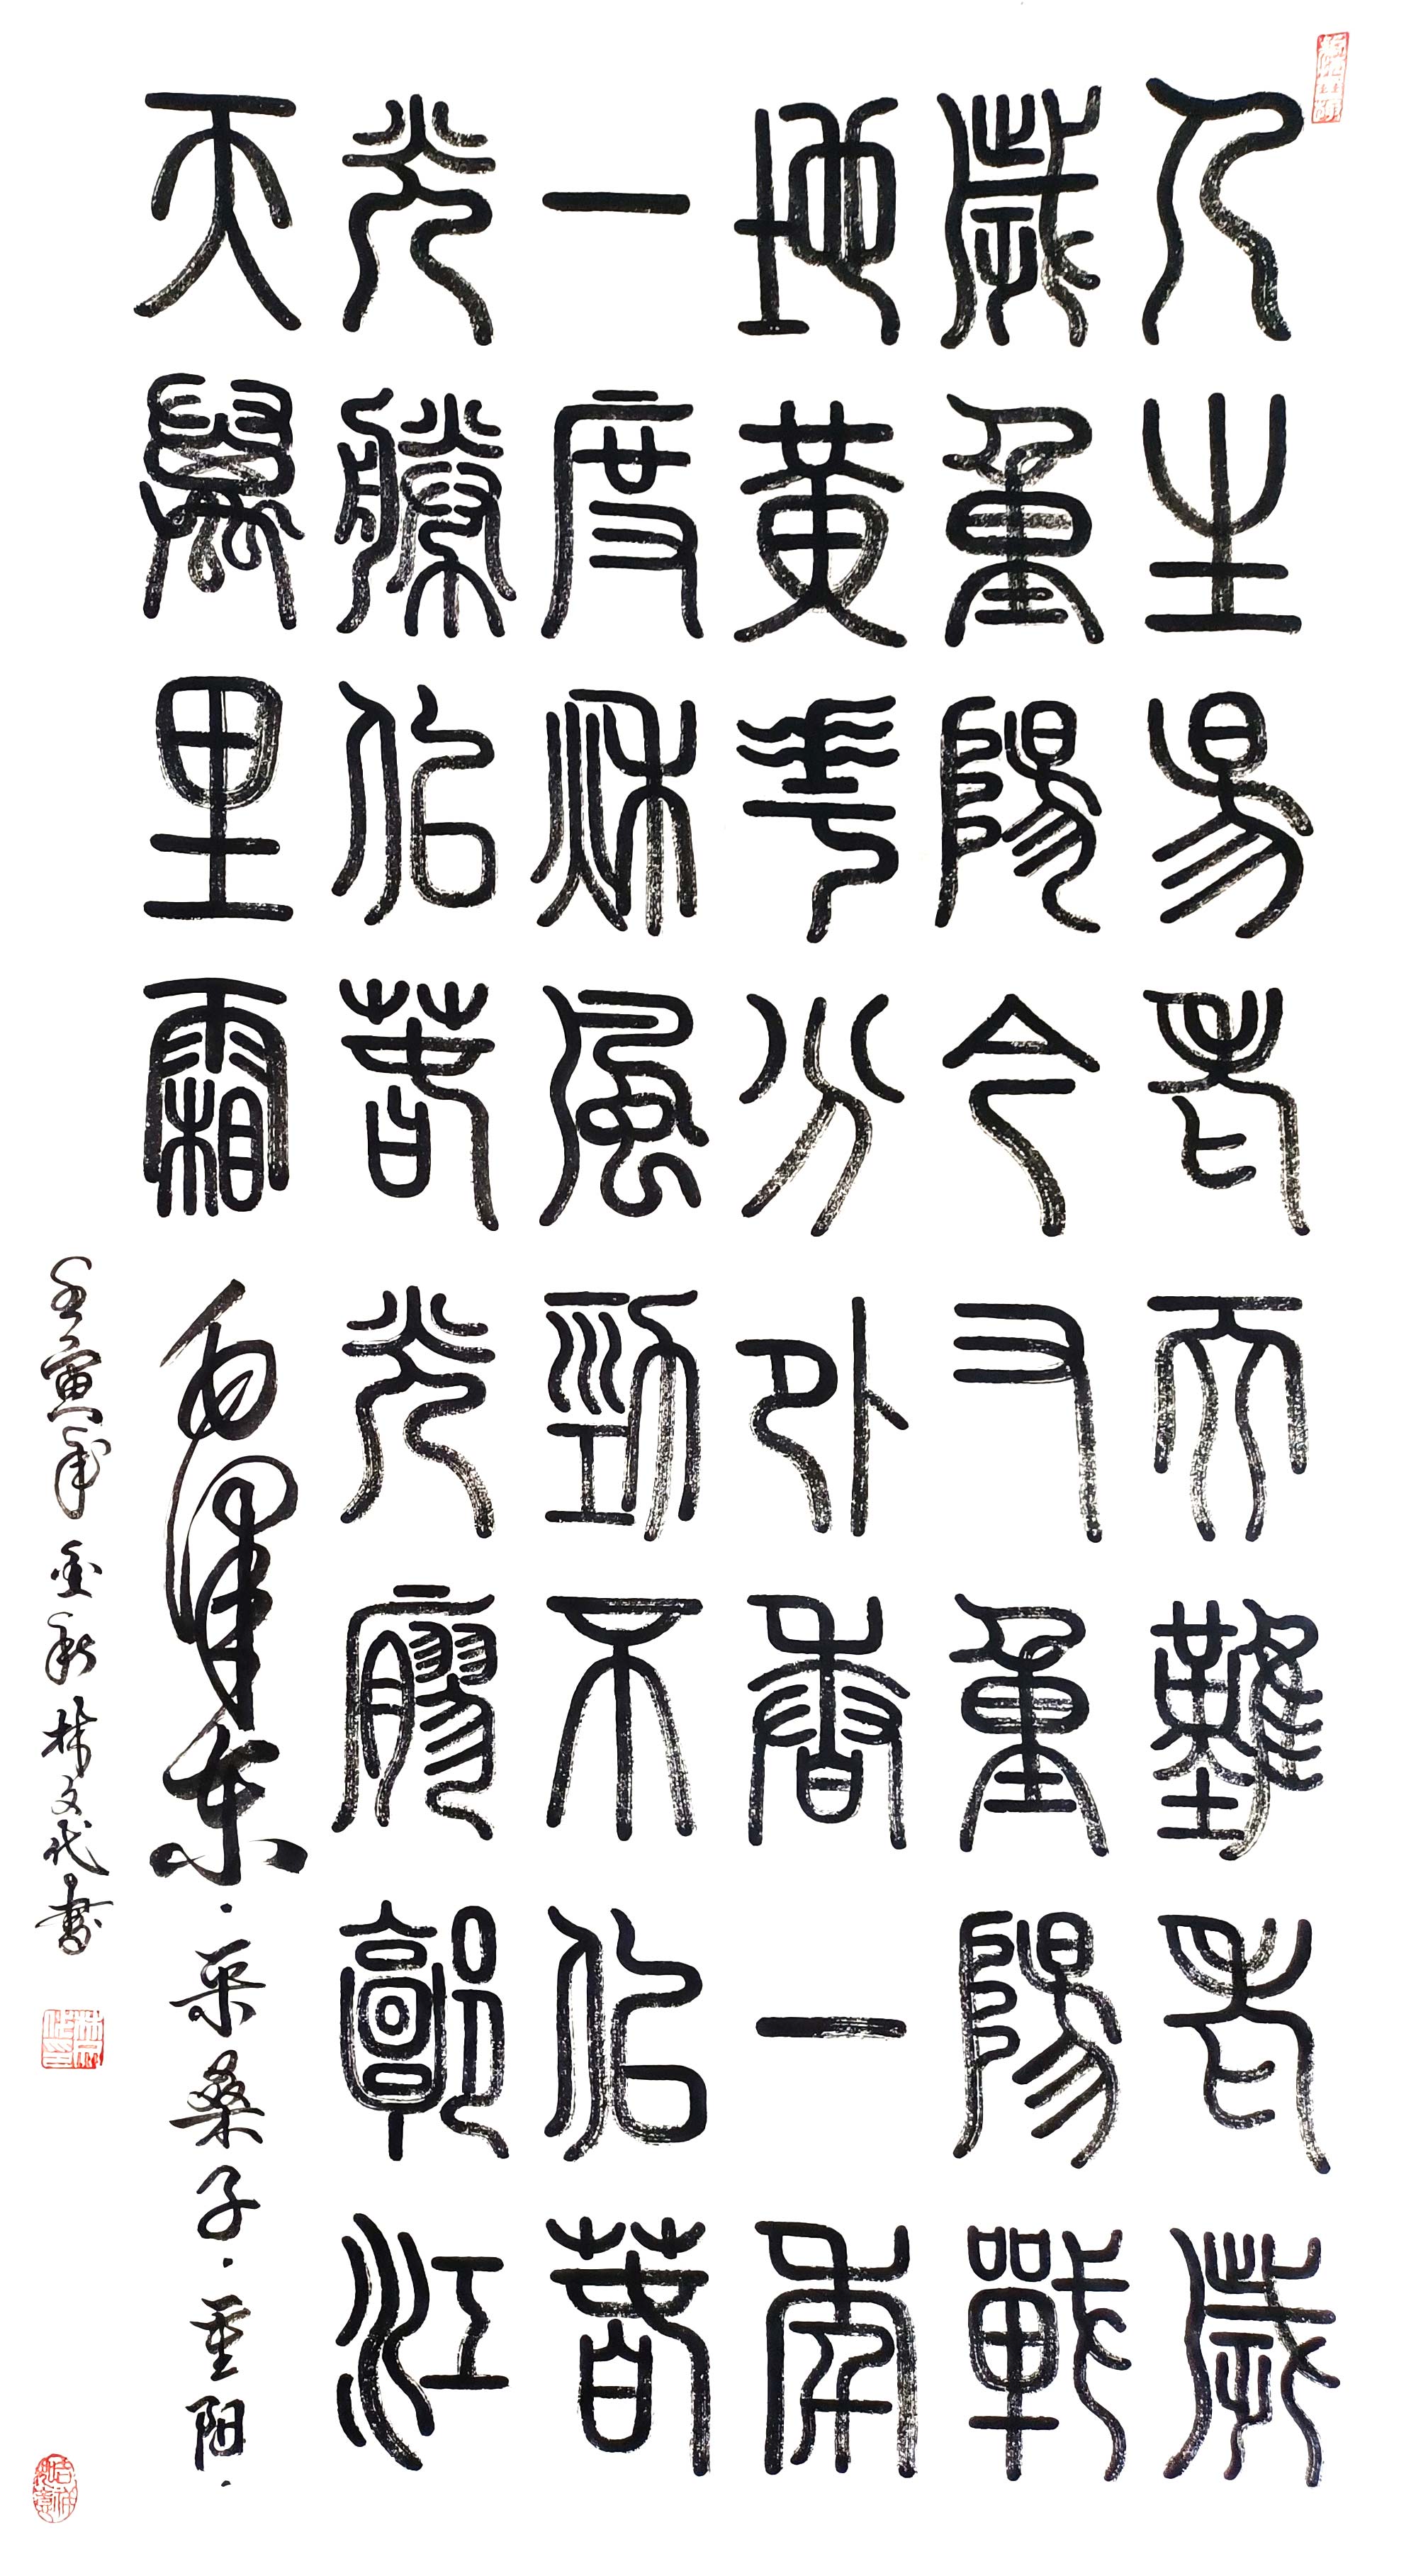 人生易老天難老歲
歲重陽今又重陽戰
地黃花分外香一年
一度秋風勁不似春
光勝似春光廖郭江
天萬里霜 毛澤東·采桑子·重阳·
壬寅年金秋林文代書
林文代印
吉祥如意